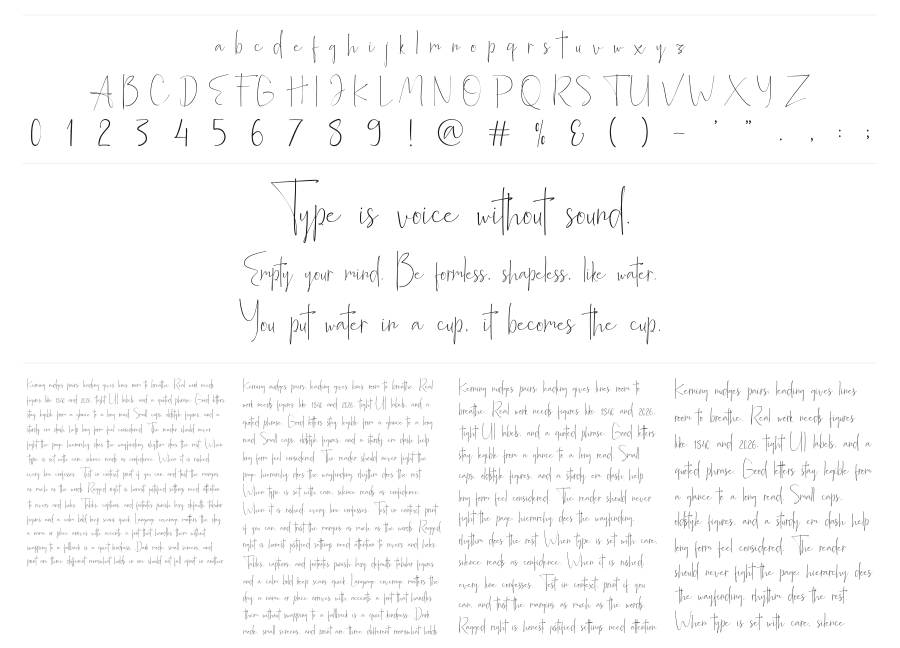 a b c d e f g h i j k l m n o p q r s t u v w x y z
A B C D E F G H I J K L M N O P Q R S T U V W X Y Z
0 1 2 3 4 5 6 7 8 9 ! @ # % & ( ) – ’ ” . , : ;
Type is voice without sound.
Empty your mind. Be formless, shapeless, like water.
You put water in a cup, it becomes the cup.
Kerning nudges pairs; leading gives lines room to breathe. Real work needs
figures like 1546 and 2026, tight UI labels, and a quoted phrase. Good letters
stay legible from a glance to a long read. Small caps, oldstyle figures, and a
sturdy em dash help long form feel considered. The reader should never
fight the page; hierarchy does the wayfinding, rhythm does the rest. When
type is set with care, silence reads as confidence. When it is rushed,
every line confesses. Test in context, print if you can, and trust the margins
as much as the words. Ragged right is honest; justified settings need attention
to rivers and holes. Tables, captions, and footnotes punish lazy defaults. Tabular
figures and a calm bold keep scans quick. Language coverage matters the day
a name or place arrives with accents a font that handles them without
swapping to a fallback is a quiet kindness. Dark mode, small screens, and
print are three different rooms
Kerning nudges pairs; leading gives lines room to breathe. Real
work needs figures like 1546 and 2026, tight UI labels, and a
quoted phrase. Good letters stay legible from a glance to a long
read. Small caps, oldstyle figures, and a sturdy em dash help
long form feel considered. The reader should never fight the
page; hierarchy does the wayfinding, rhythm does the rest.
When type is set with care, silence reads as confidence.
When it is rushed, every line confesses. Test in context, print
if you can, and trust the margins as much as the words. Ragged
right is honest; justified settings need attention to rivers and holes.
Tables, captions, and footnotes punish lazy defaults. Tabular figures
and a calm bold keep scans quick. Language coverage matters the
day a name or place arrives with accents a font that handles
them without swapping to a fallback is a quiet kindness. Dark
mode, small screens, and print are three different
Kerning nudges pairs; leading gives lines room to
breathe. Real work needs figures like 1546 and 2026,
tight UI labels, and a quoted phrase. Good letters
stay legible from a glance to a long read. Small
caps, oldstyle figures, and a sturdy em dash help
long form feel considered. The reader should never
fight the page; hierarchy does the wayfinding,
rhythm does the rest. When type is set with care,
silence reads as confidence. When it is rushed,
every line confesses. Test in context, print if you
can, and trust the margins as much as the words.
Ragged right is honest; justified settings need attention
Kerning nudges pairs; leading gives lines
room to breathe. Real work needs figures
like 1546 and 2026, tight UI labels, and a
quoted phrase. Good letters stay legible from
a glance to a long read. Small caps,
oldstyle figures, and a sturdy em dash help
long form feel considered. The reader
should never fight the page; hierarchy does
the wayfinding, rhythm does the rest.
When type is set with care, silence